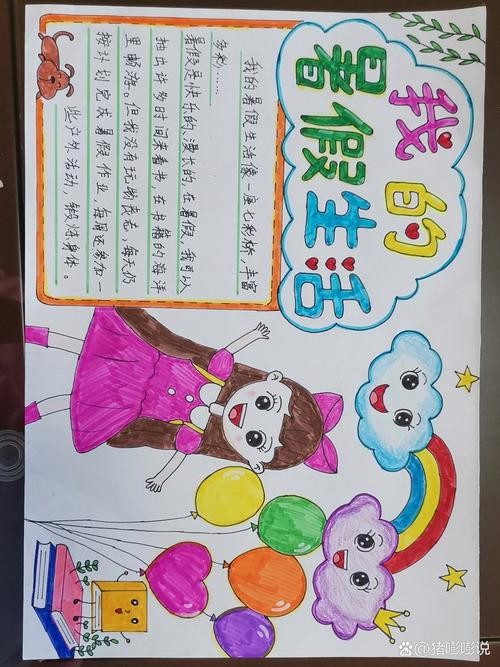 我的
暑假生活
我的暑假生活像一座七彩桥，丰富
多彩……
暑假是快乐的，漫长的，在暑假，我可以
抽出许多时间来看书，在书籍的海洋
里畅游。但我没有玩物丧志，每天仍
按计划完成暑假作业，每周还参加一
些户外活动，锻炼身体。
@猪嘭嘭说